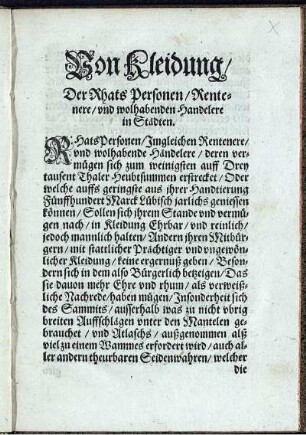 Von Kleidung/
Der Rhats Personen/Rente-
nere/vnd wolhabenden Handelere
in Städten.
RHatsPersonen/Imgleichen Rentenere/
vnd wolhabende Händelere/deren ver-
mügen sich zum weinigsten auff Drey
tausent Thaler Heubtsummen erstrecket/Oder
welche auffs geringste aus jhrer Handtierung
Fünffhundert Marck Lübisch jarlichs geniessen
können/Sollen sich jhrem Stande vnd vermü-
gen nach/in Kleidung Ehrbar/vnd reinlich/
jedoch mannlich halten/Andern jhren Mitbür-
gern/mit stattlicher Prächtiger vnd vngewön-
licher Kleidung/keine ergernuß geben/Beson-
dern sich in dem also Bürgerlich betzeigen/Das
sie dauon mehr Ehre vnd rhum/als verweiß-
liche Nachrede/haben mügen/Insonderheit sich
des Sammits/ausserhalb was zu nicht vbrig
breiten Auffschlägen vnter den Mantelen ge-
brauchet/vnd Atlaschs/außgenommen alß
viel zu einem Wammes erfordert wird/auch al-
ler andern theurbaren Seidenwahren/welcher
die